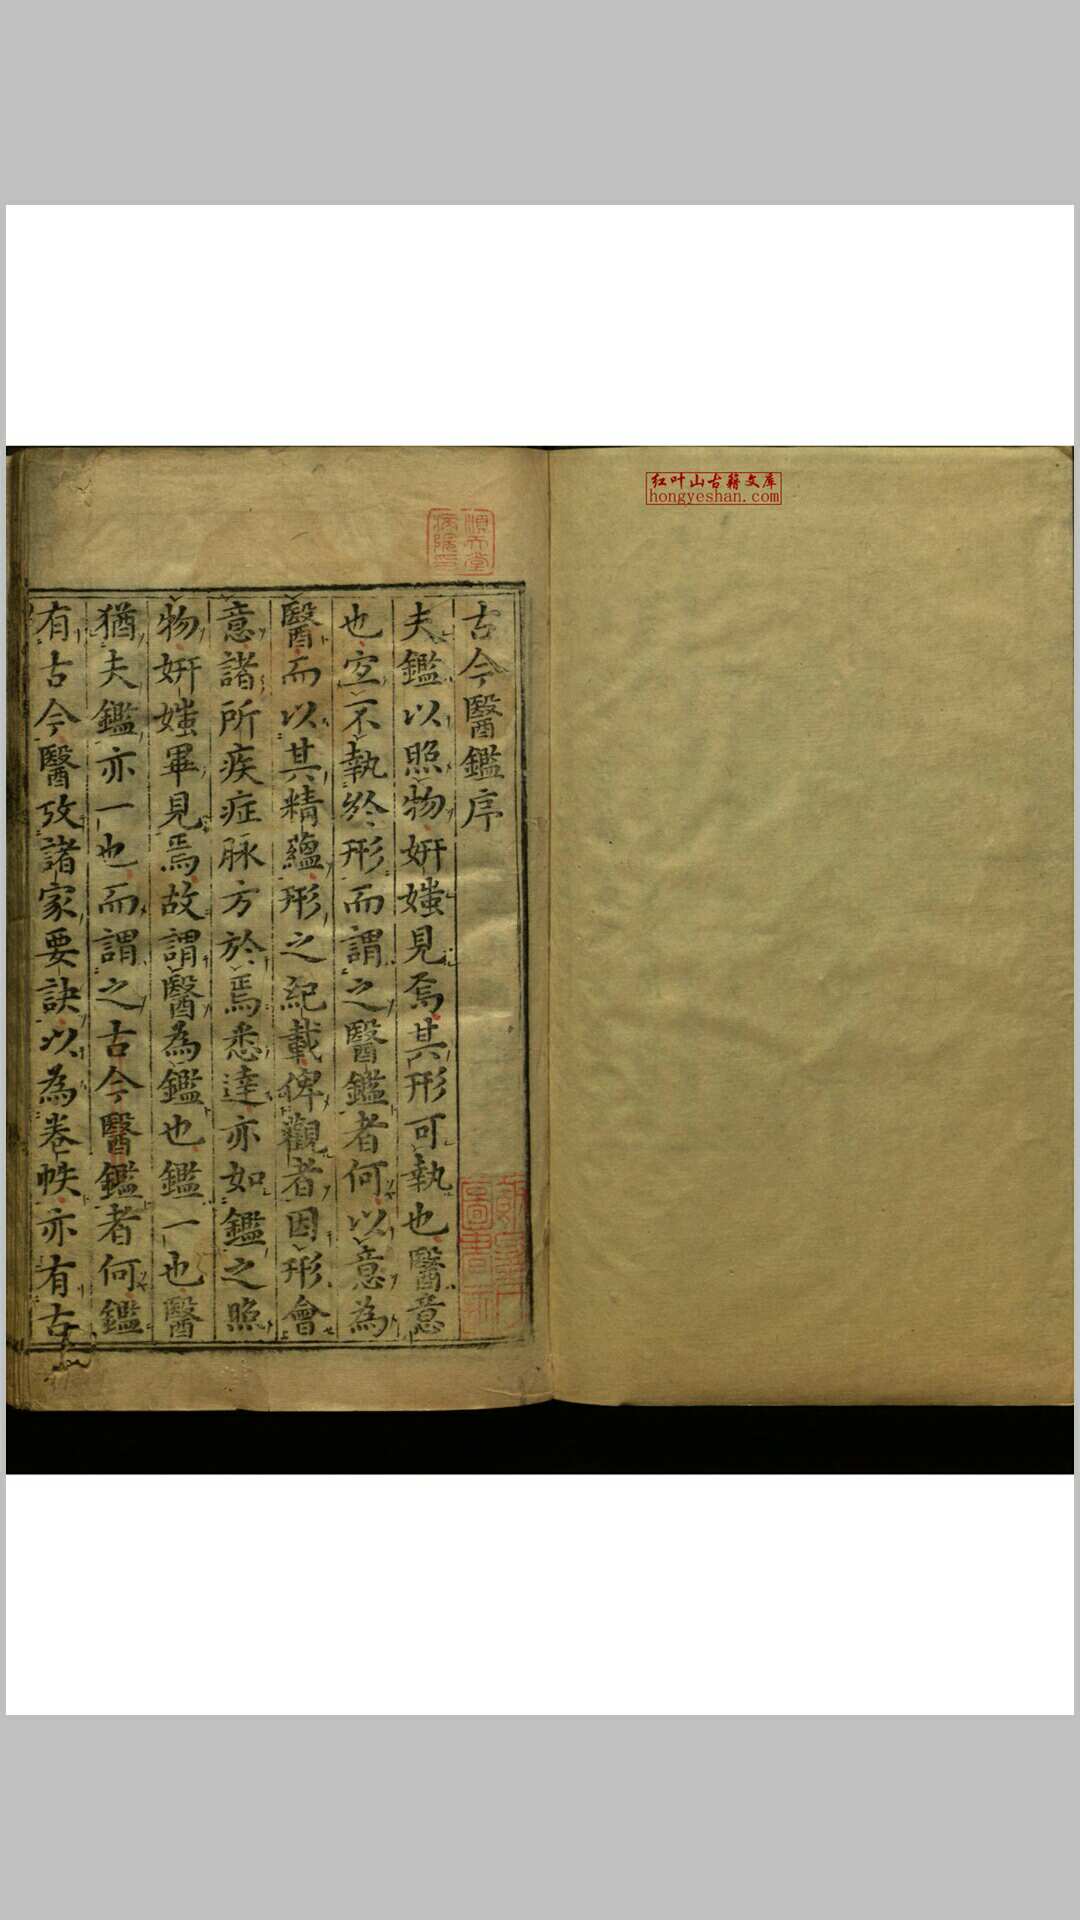 红叶山古籍文库
hongyeshan.com
古今醫鑑序
夫鑑以照物妍媸見焉其形可執也醫意
也宜不執於形而謂之醫鑑者何以意為
醫而以其精蘊形之紀載俾觀者因形會
意諸所疾症脉方於焉悉達亦如鑑之照
物妍媸畢見焉故謂醫為鑑也鑑一也醫
猶夫鑑亦一也而謂之古今醫鑑者何鑑
有古今醫攷諸家要訣以為卷帙亦有古